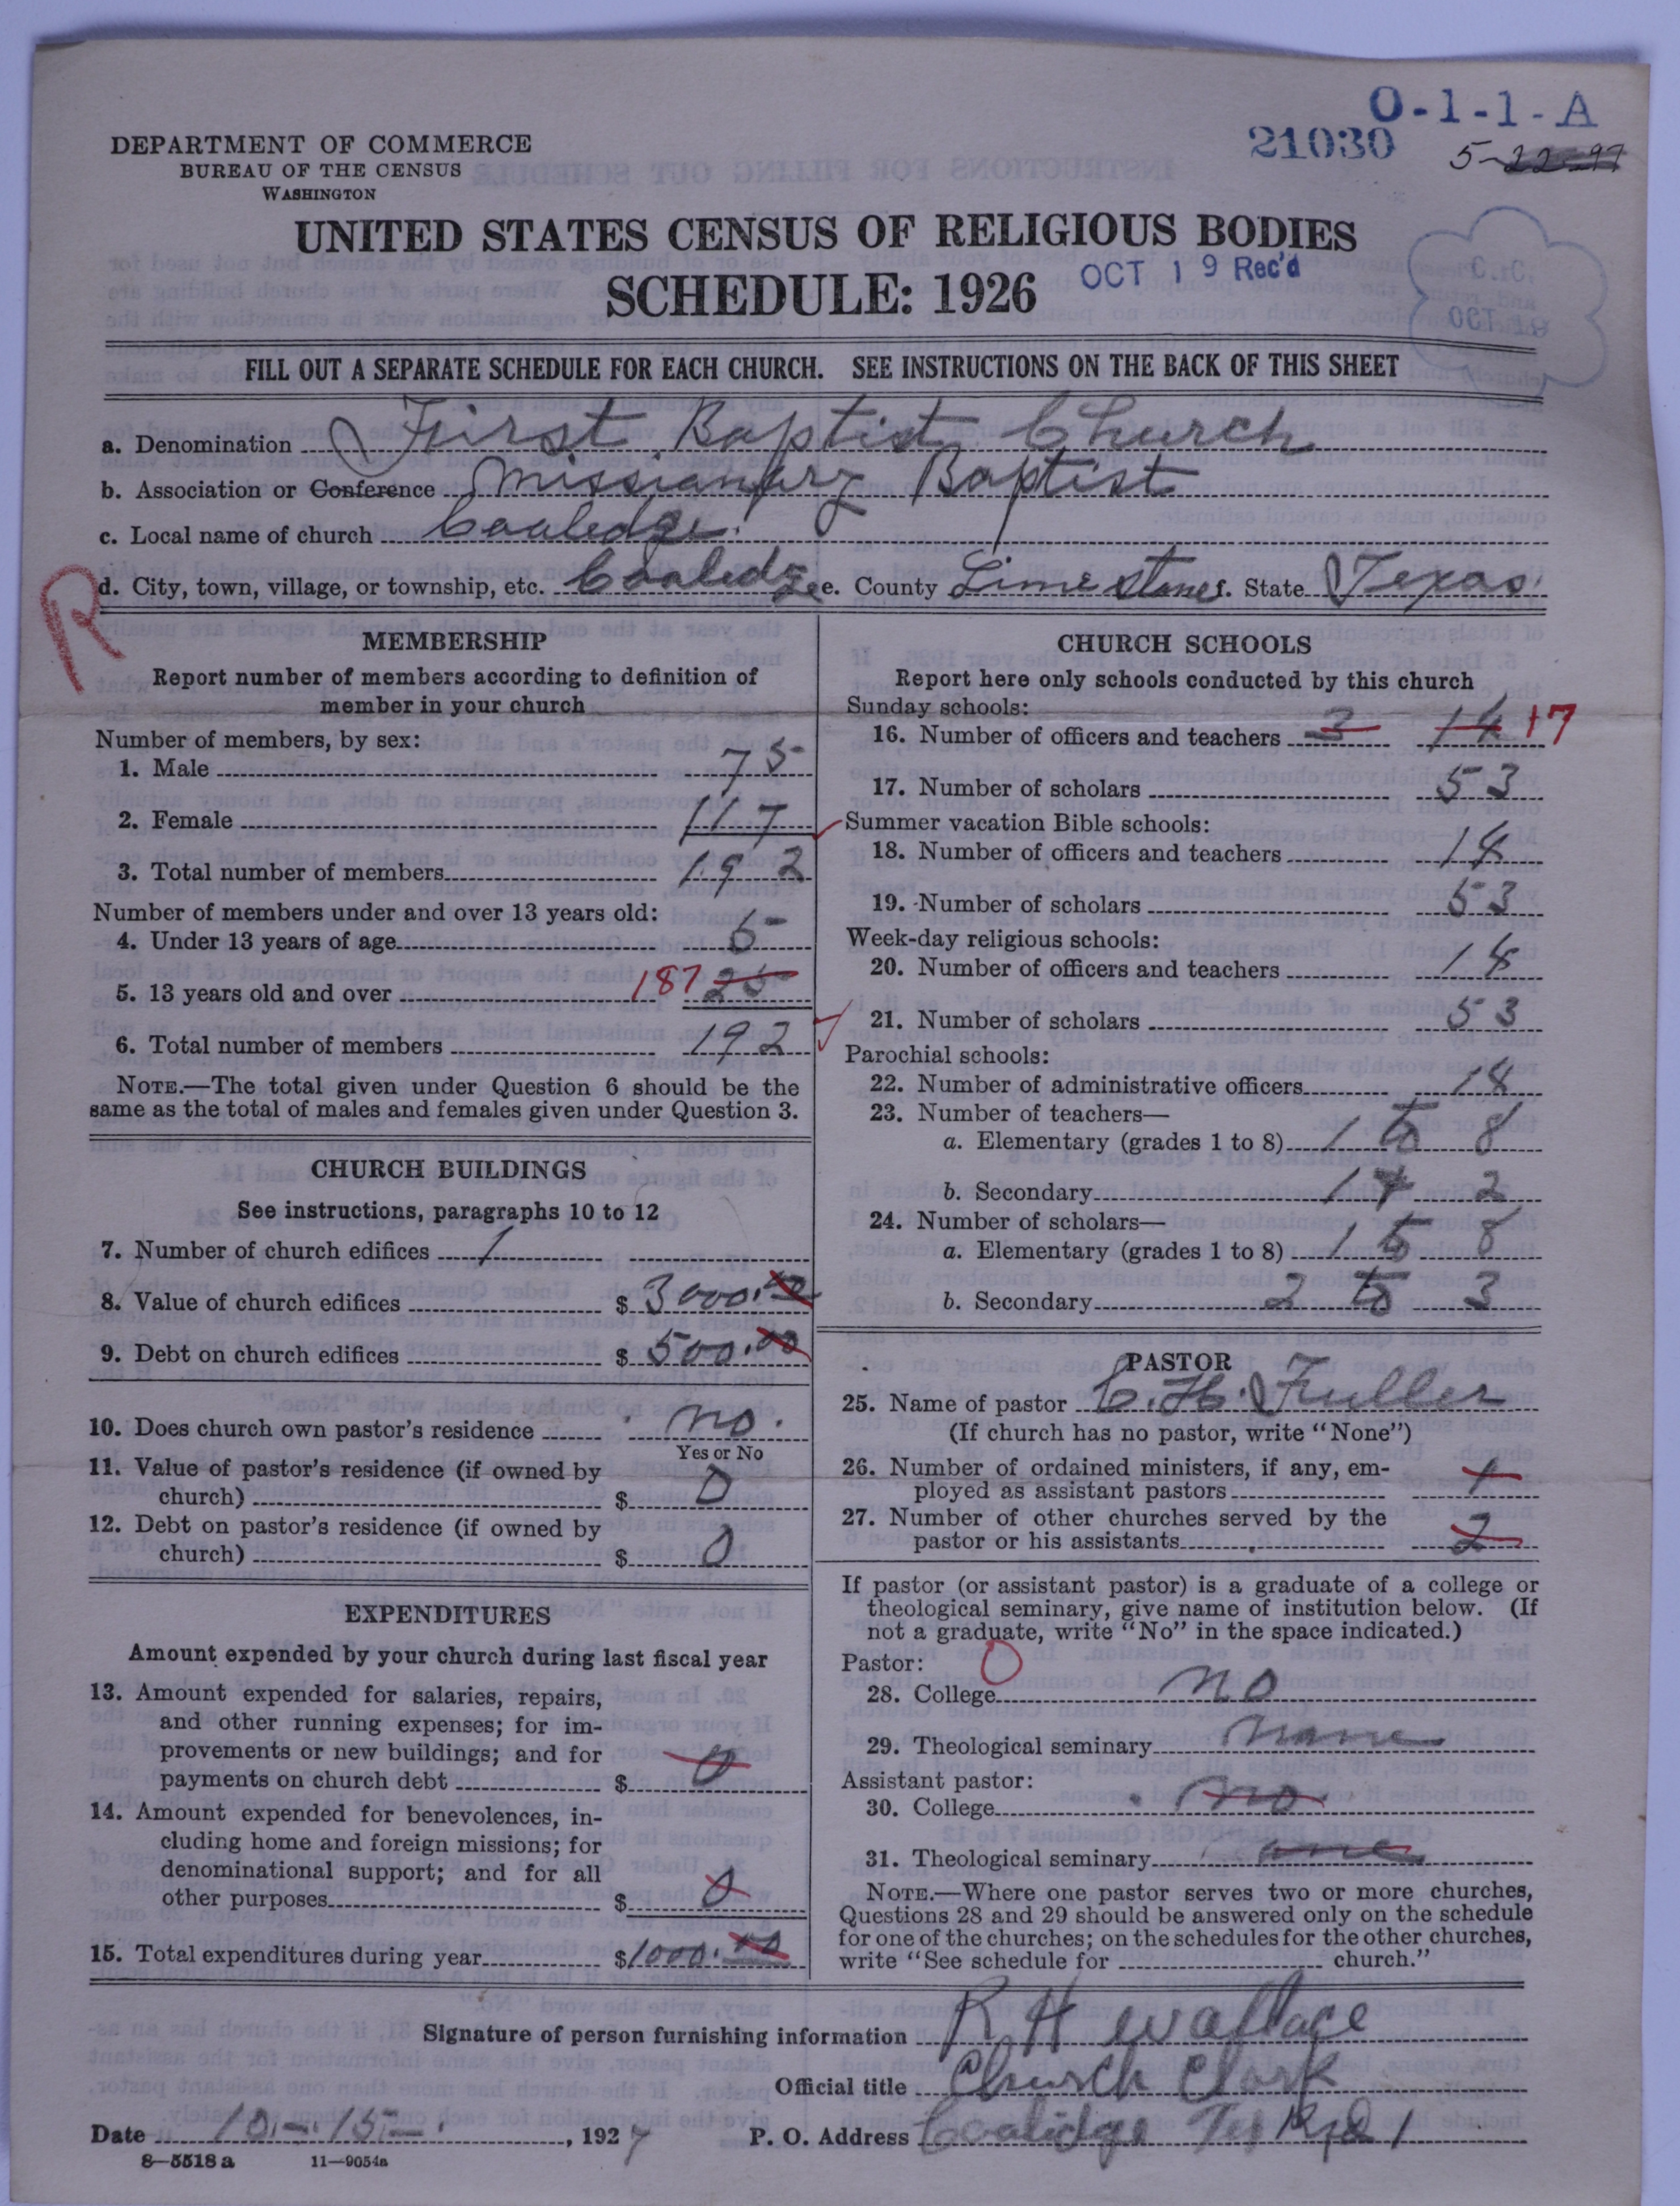 O-1-1-A
DEPARTMENT OF COMMERCE
BUREAU OF THE CENSUS
WASHINGTON
21030
5-22-97
UNITED STATES CENSUS OF RELIGIOUS BODIES
SCHEDULE: 1926
OCT 19 Rec'd
FILL OUT A SEPARATE SCHEDULE FOR EACH CHURCH. SEE INSTRUCTIONS ON THE BACK OF THIS SHEET
a. Denomination First Baptist Church
b. Association or Conference Missionary Baptist
c. Local name of church Cooledge.
d. City, town, village, or township, etc. Cooledge e. County Limestone f. State Texas
R
MEMBERSHIP
Report number of members according to definition of
member in your church
Number of members, by sex:
1. Male 75
2. Female 117
3. Total number of members 192
Number of members under and over 13 years old:
4. Under 13 years of age 5
5. 13 years old and over 187 25
6. Total number of members 192
NOTE.—The total given under Question 6 should be the
same as the total of males and females given under Question 3.
CHURCH BUILDINGS
See instructions, paragraphs 10 to 12
7. Number of church edifices 1
8. Value of church edifices $ 3000.00
9. Debt on church edifices $ 500.00
10. Does church own pastor's residence no.
Yes or No
11. Value of pastor's residence (if owned by
church) $ 0
12. Debt on pastor's residence (if owned by
church) $ 0
EXPENDITURES
Amount expended by your church during last fiscal year
13. Amount expended for salaries, repairs,
and other running expenses; for im-
provements or new buildings; and for
payments on church debt $ 0
14. Amount expended for benevolences, in-
cluding home and foreign missions; for
denominational support; and for all
other purposes $ 0
15. Total expenditures during year $1000.00
CHURCH SCHOOLS
Report here only schools conducted by this church
Sunday schools:
16. Number of officers and teachers 3 14 17
17. Number of scholars 53
Summer vacation Bible schools:
18. Number of officers and teachers 14
19. Number of scholars 53
Week-day religious schools:
20. Number of officers and teachers 14
21. Number of scholars 53
Parochial schools:
22. Number of administrative officers 14
23. Number of teachers—
a. Elementary (grades 1 to 8) 1 to 8
b. Secondary 1 2
24. Number of scholars—
a. Elementary (grades 1 to 8) 1 to 8
b. Secondary 2 to 3
PASTOR
25. Name of pastor C. H. Fuller
(If church has no pastor, write "None")
26. Number of ordained ministers, if any, em-
ployed as assistant pastors 1
27. Number of other churches served by the
pastor or his assistants 2
If pastor (or assistant pastor) is a graduate of a college or
theological seminary, give name of institution below. (If
not a graduate, write "No" in the space indicated.)
Pastor: 0
28. College no
29. Theological seminary none
Assistant pastor:
30. College no
31. Theological seminary
NOTE.—Where one pastor serves two or more churches,
Questions 28 and 29 should be answered only on the schedule
for one of the churches; on the schedules for the other churches,
write "See schedule for church."
Signature of person furnishing information R H Wallace
Official title Church Clark
Date 10-15-, 1927 P. O. Address Coolidge Tex Rfd 1
8-5518 a 11-9054a